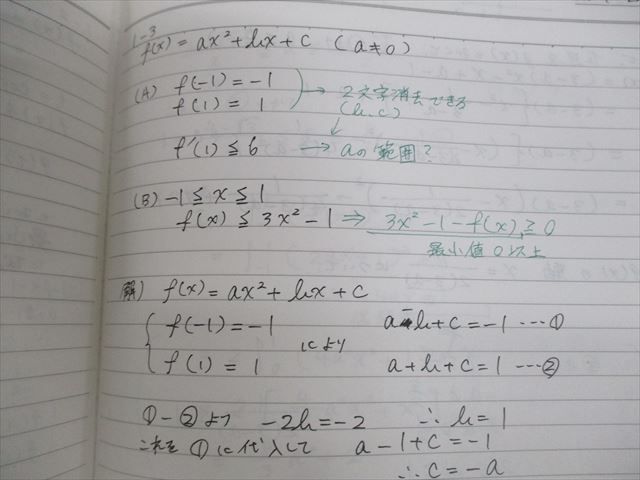 1-3
f(x) = ax² + bx + c (a ≠ 0)
(A) f(-1) = -1 → 2文字消去できる
f(1) = 1 (b, c)
↓
f'(1) ≦ 6 → aの範囲?
(B) -1 ≦ x ≦ 1
f(x) ≦ 3x² - 1 ⇒ 3x² - 1 - f(x) ≧ 0
最小値 0 以上
解) f(x) = ax² + bx + c
f(-1) = -1 a - b + c = -1 … ①
により
f(1) = 1 a + b + c = 1 … ②
① - ② より -2b = -2 ∴ b = 1
これを ① に代入して a - 1 + c = -1
∴ c = -a